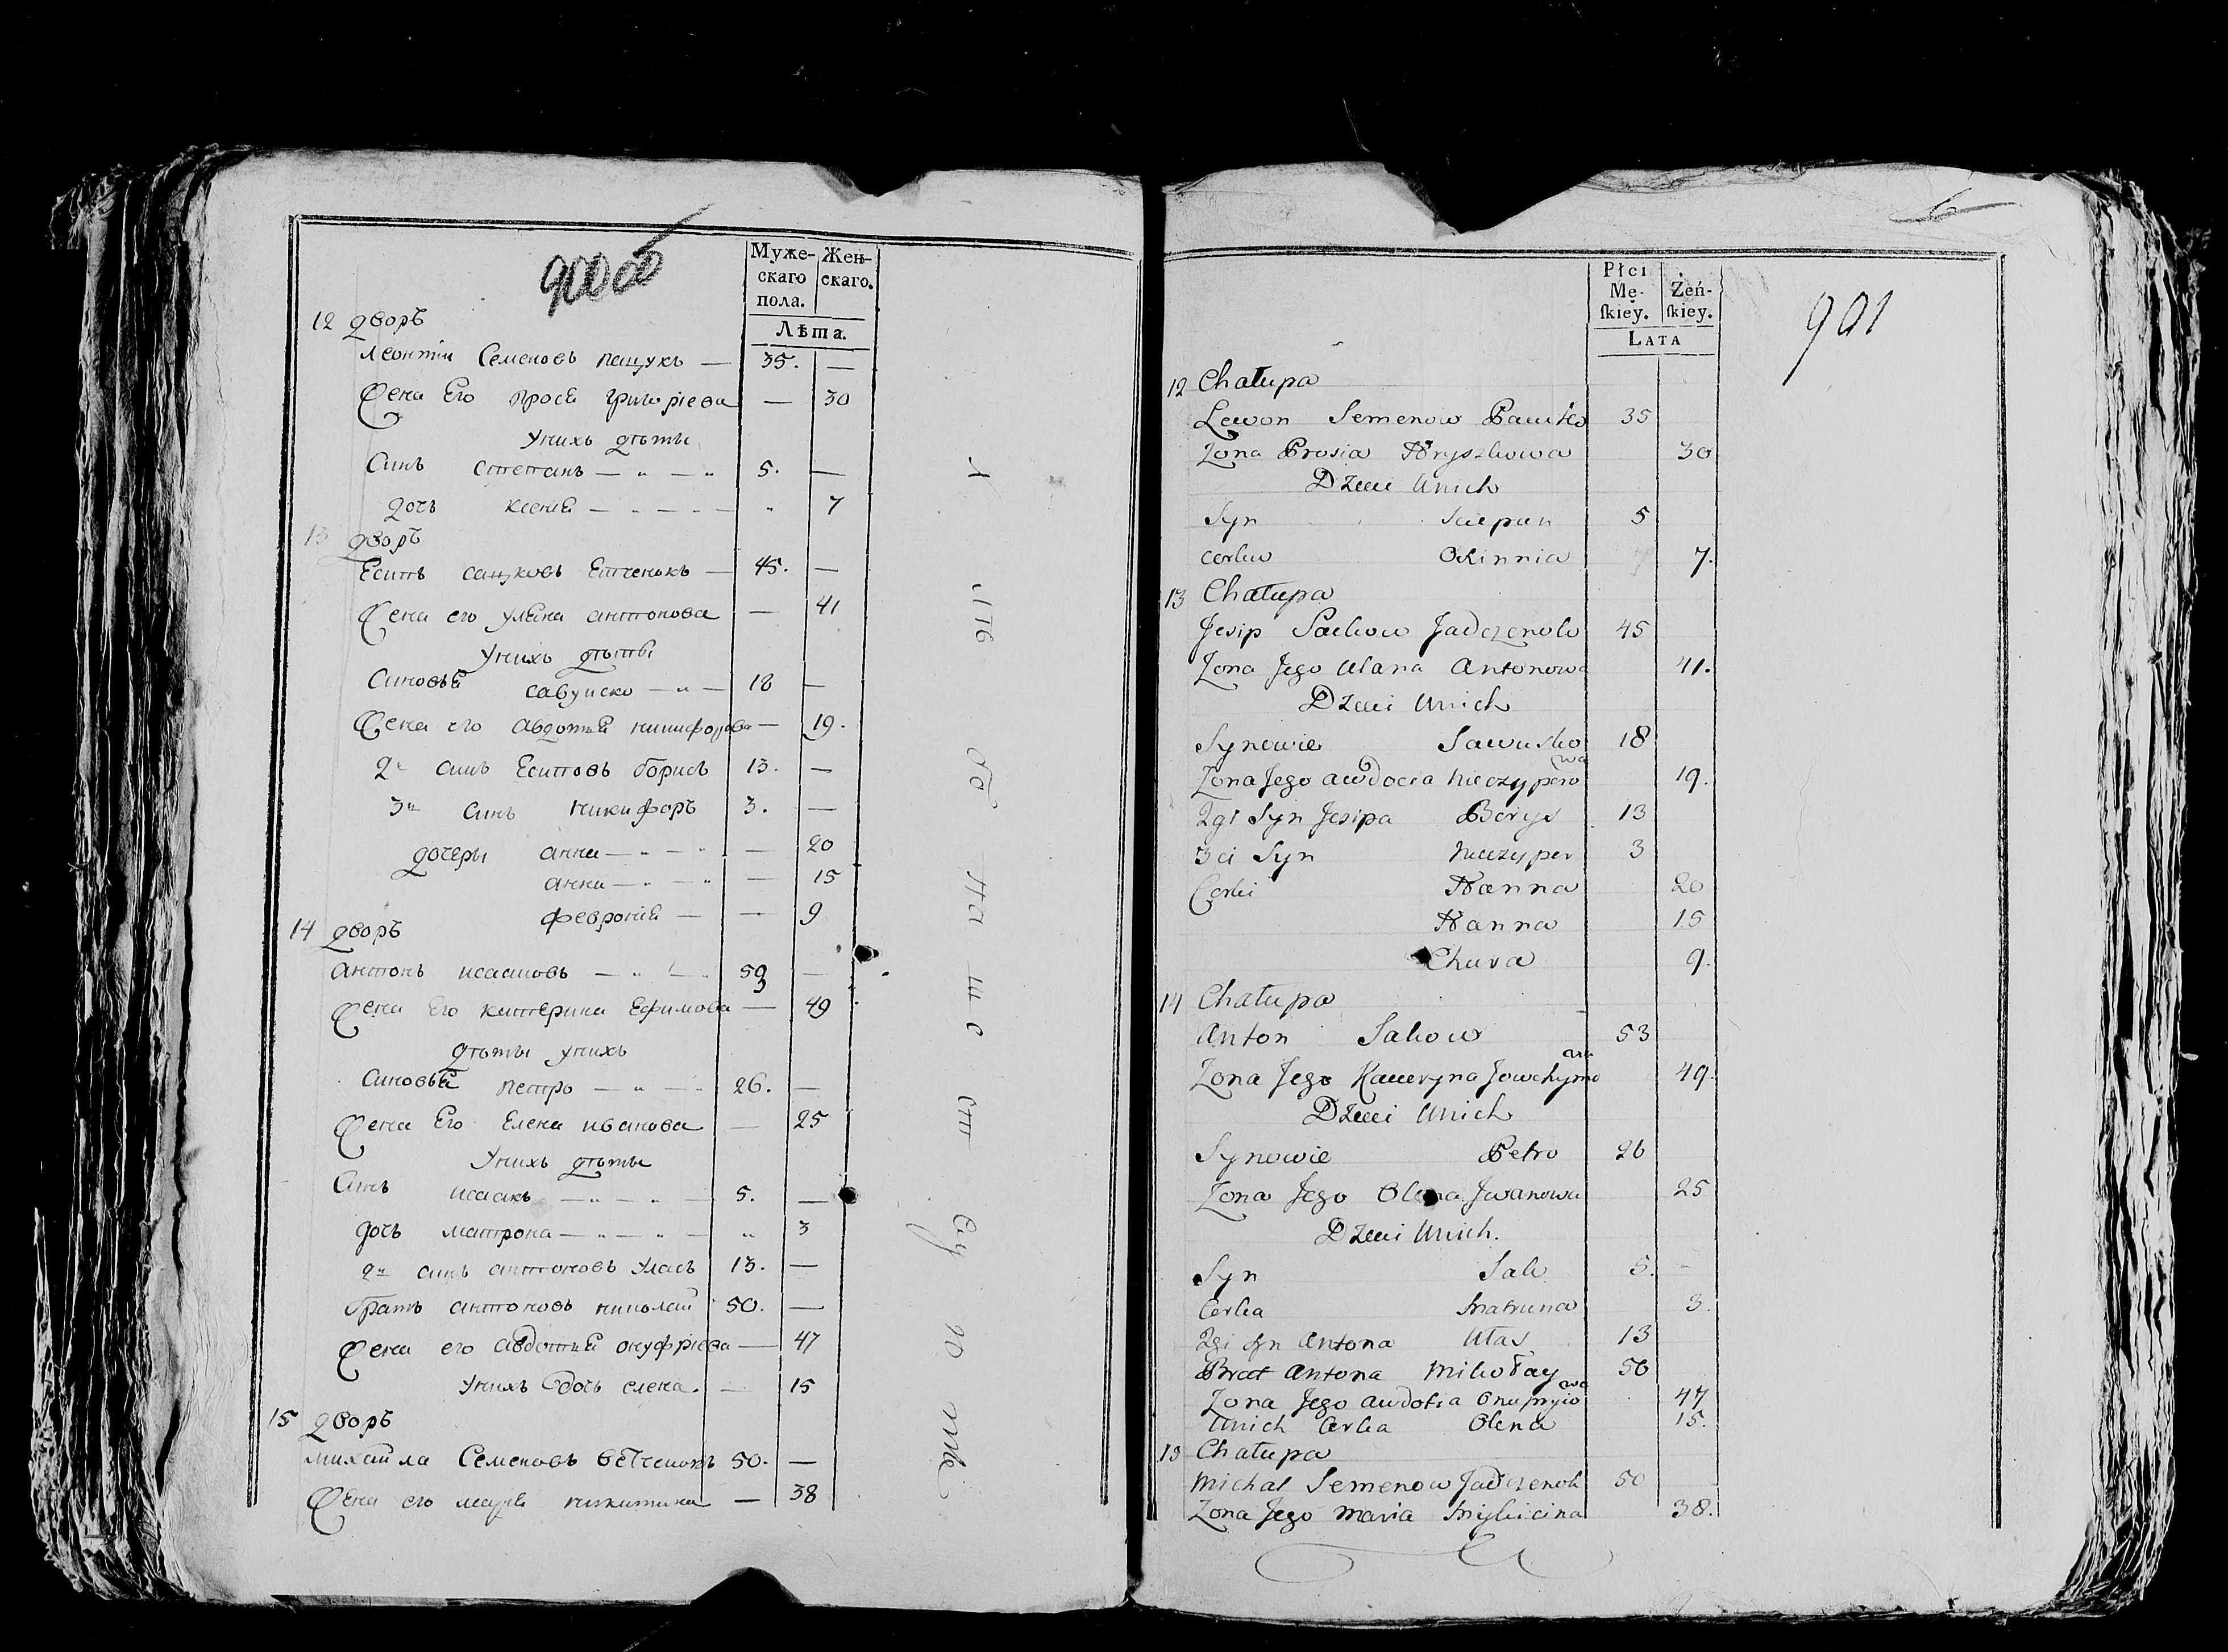 Муже-
скаго
пола.
Жен-
скаго.
Лѣта.
12 дворъ
Леонтіи Семеновъ пащукъ — 35. —
Жена Его прося григоріева — 30
Унихъ дѣты
Синъ степанъ — " — " 5. —
дочь ксенія — 7
13 дворъ
Есипъ сацковъ — 45. —
Жена его уляна антонова — 41
Унихъ дѣты
Синовья савуско — " — 18 —
Жена его авдотья никифорова — 19.
2й синъ Есиповъ борисъ 13. —
3й синъ никифоръ 3. —
дочеры анна — " — " — 20
анна — " — " — 15
февронія — — 9
14 дворъ
антонъ исааковъ — 53 —
Жена Его катерина Ефимова — 49
дѣты унихъ
Синовья петро — " — " 26. —
Жена Его Елена иванова — 25
Унихъ дѣты
Синъ исаакъ — " — " — 5. —
дочь матрона — " — " — " 3
2й синъ антоновъ Уласъ 13. —
братъ антоновъ николай 50. —
Жена его авдотья онуфріева — 47
Унихъ дочь елена. — 15
15 дворъ
михайла Семеновъ 50. —
Жена его марья никитина — 38
901
Płci
Mę-
ſkiey.
Żeń-
ſkiey.
LATA
12 Chałupa
Lewon Semenow 35
Zona Prosia Hryszkowa 30
Dzieci Unich
Syn Sciepan 5
corka Okinnia 7.
13 Chałupa
Jesip Sackow Jadczenok 45
Zona Jego Ulana Antonowa 41.
Dzieci Unich
Synowie Sawusko 18
Zona Jego awdocia Niczyporowa 19.
2gi Syn Jesipa Borys 13
3ci Syn Niczypor 3
Corki Hanna 20
Hanna 15
Chura 9.
14 Chałupa
Anton Sakow 53
Zona Jego Kacieryna Jowchymowa 49.
Dzieci Unich
Synowie Petro 26
Zona Jego Olena Jwanowa 25
Dzieci Unich.
Syn Sak 5. -
Corka Matruna 3.
2gi syn Antona Ułas 13
Brat Antona Mikołay 50
Zona Jego Awdotia Onupryiowa 47
Unich Corka Olena 15.
15 Chałupa
Michał Semenow Jadczenok 50
Zona Jego Maria Mykicina 38.